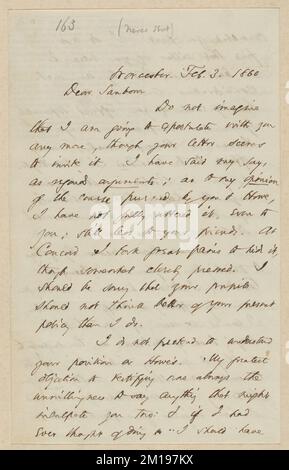 163 (never sent)
Worcester Feb. 3. 1860
Dear Sanborn
Do not imagine
that I am going to expostulate with you
any more, though your letter seems
to invite it. I have said my say,
as regards arguments; as to my opinion
of the course pursued by you & Howe,
I have not fully uttered it, even to
you; still less to your friends. At
Concord I took great pains to hide it,
though somewhat closely pressed. I
should be sorry that your pupils
should not think better of your present
policy than I do.
I do not pretend to understand
your position or Howe's. My greatest
objection to testifying was always the
unwillingness to say anything that might
inculpate you two: & if I had
ever thought of doing so I should have
alamy
Image ID: 2M197KX
www.alamy.com